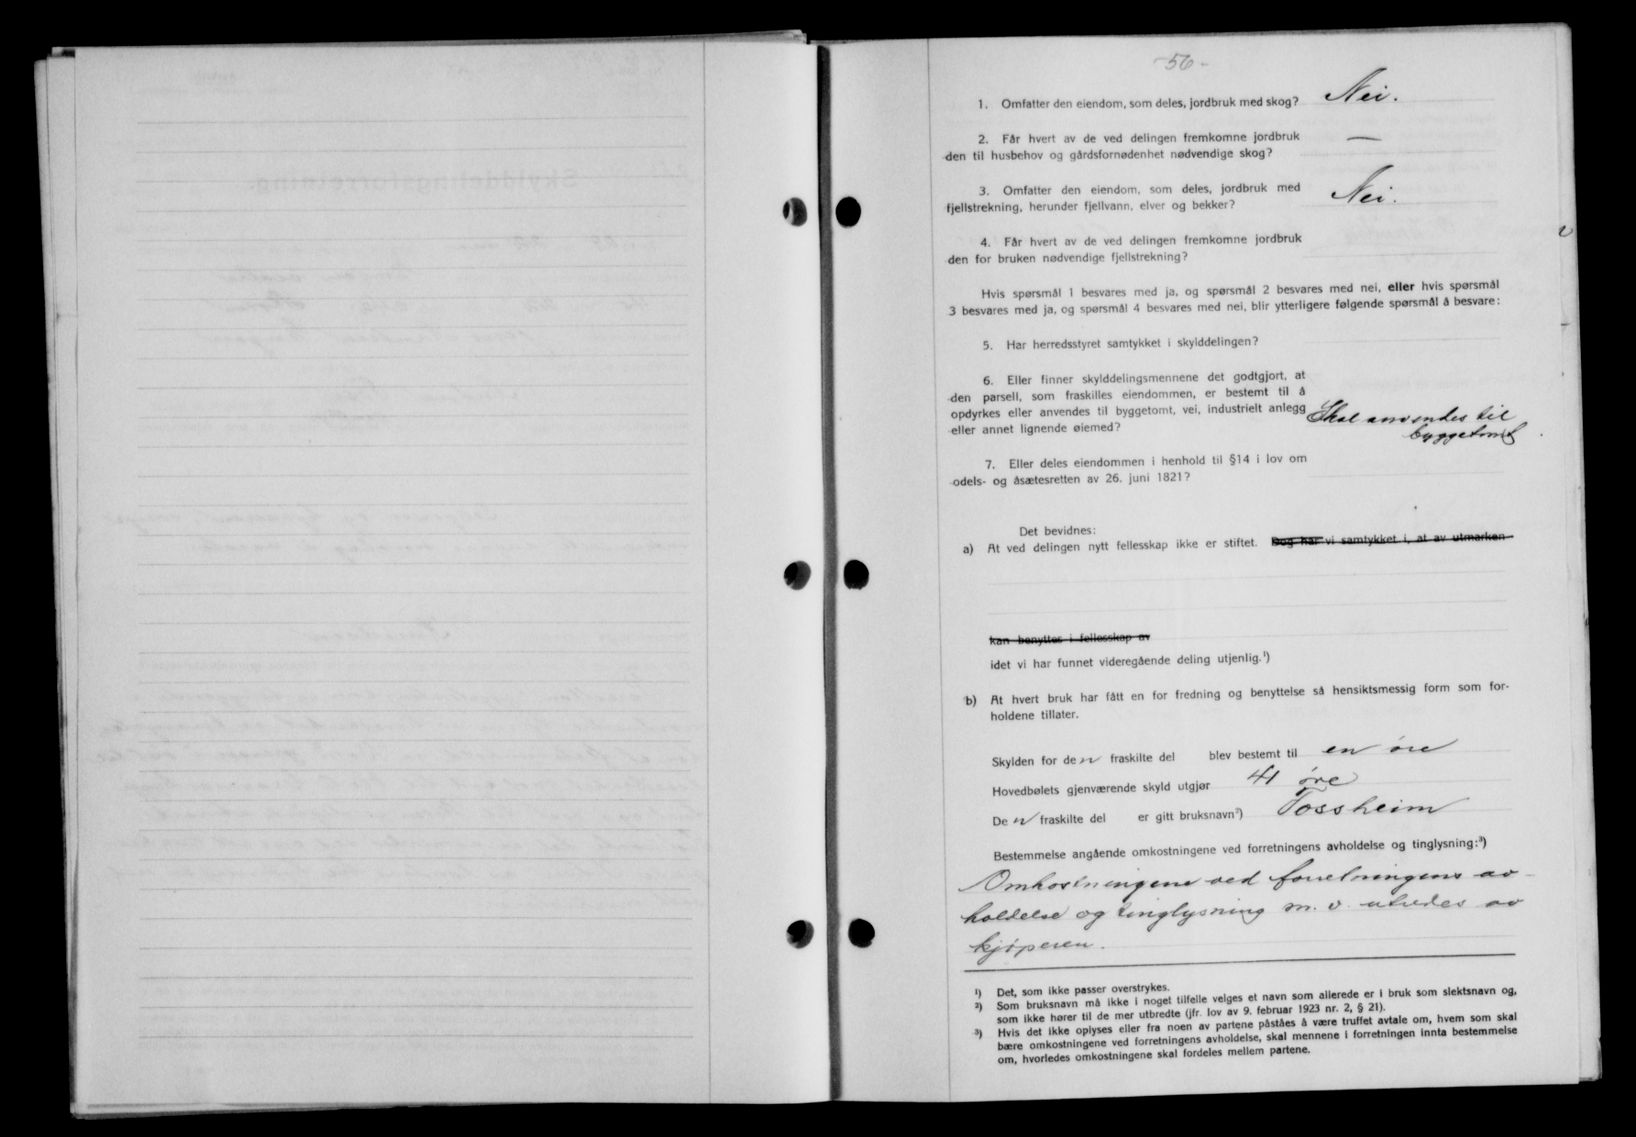 -56-
1. Omfatter den eiendom, som deles, jordbruk med skog? Nei.
2. Får hvert av de ved delingen fremkomne jordbruk —
den til husbehov og gårdsfornødenhet nødvendige skog?
3. Omfatter den eiendom, som deles, jordbruk med Nei.
fjellstrekning, herunder fjellvann, elver og bekker?
4. Får hvert av de ved delingen fremkomne jordbruk
den for bruken nødvendige fjellstrekning?
Hvis spørsmål 1 besvares med ja, og spørsmål 2 besvares med nei, eller hvis spørsmål
3 besvares med ja, og spørsmål 4 besvares med nei, blir ytterligere følgende spørsmål å besvare:
5. Har herredsstyret samtykket i skylddelingen?
6. Eller finner skylddelingsmennene det godtgjort, at
den parsell, som fraskilles eiendommen, er bestemt til å
opdyrkes eller anvendes til byggetomt, vei, industrielt anlegg Skal anvendes til
eller annet lignende øiemed? byggetomt
7. Eller deles eiendommen i henhold til §14 i lov om
odels- og åsætesretten av 26. juni 1821?
Det bevidnes:
a) At ved delingen nytt fellesskap ikke er stiftet. Dog har vi samtykket i, at av utmarken
kan benyttes i fellesskap av
idet vi har funnet videregående deling utjenlig.¹)
b) At hvert bruk har fått en for fredning og benyttelse så hensiktsmessig form som for-
holdene tillater.
Skylden for den fraskilte del blev bestemt til en øre
Hovedbølets gjenværende skyld utgjør 41 øre
Den fraskilte del er gitt bruksnavn²) Fossheim
Bestemmelse angående omkostningene ved forretningens avholdelse og tinglysning:³)
Omkostningene ved forretningens av-
holdelse og tinglysning m. v. utredes av
kjøperen.
¹) Det, som ikke passer overstrykes.
²) Som bruksnavn må ikke i noget tilfelle velges et navn som allerede er i bruk som slektsnavn og,
som ikke hører til de mer utbredte (jfr. lov av 9. februar 1923 nr. 2, § 21).
³) Hvis det ikke oplyses eller fra noen av partene påståes å være truffet avtale om, hvem som skal
bære omkostningene ved forretningens avholdelse, skal mennene i forretningen innta bestemmelse
om, hvorledes omkostningene skal fordeles mellem partene.